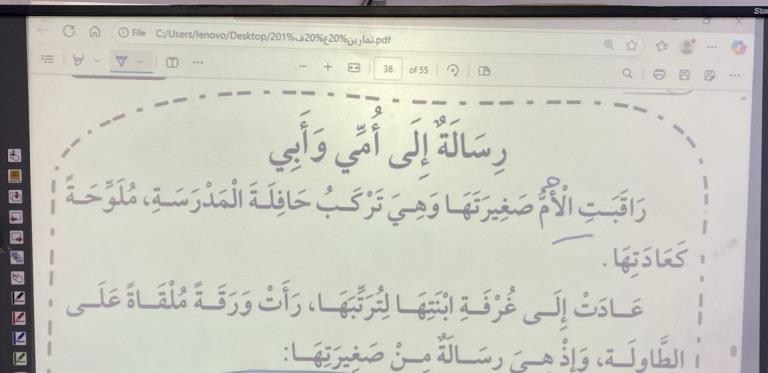 Star
File C:/Users/lenovo/Desktop/201%ف20%ع20%تمارين.pdf
36 of 55
رِسَالَةٌ إِلَى أُمِّي وَأَبِي
رَاقَبَتِ الْأُمُّ صَغِيرَتَهَا وَهِيَ تَرْكَبُ حَافِلَةَ الْمَدْرَسَةِ، مُلَوِّحَةً
كَعَادَتِهَا.
عَادَتْ إِلَى غُرْفَةِ ابْنَتِهَا لِتُرَتِّبَهَا، رَأَتْ وَرَقَةً مُلْقَاةً عَلَى
الطَّاوِلَةِ، وَإِذْ هِيَ رِسَالَةٌ مِنْ صَغِيرَتِهَا: